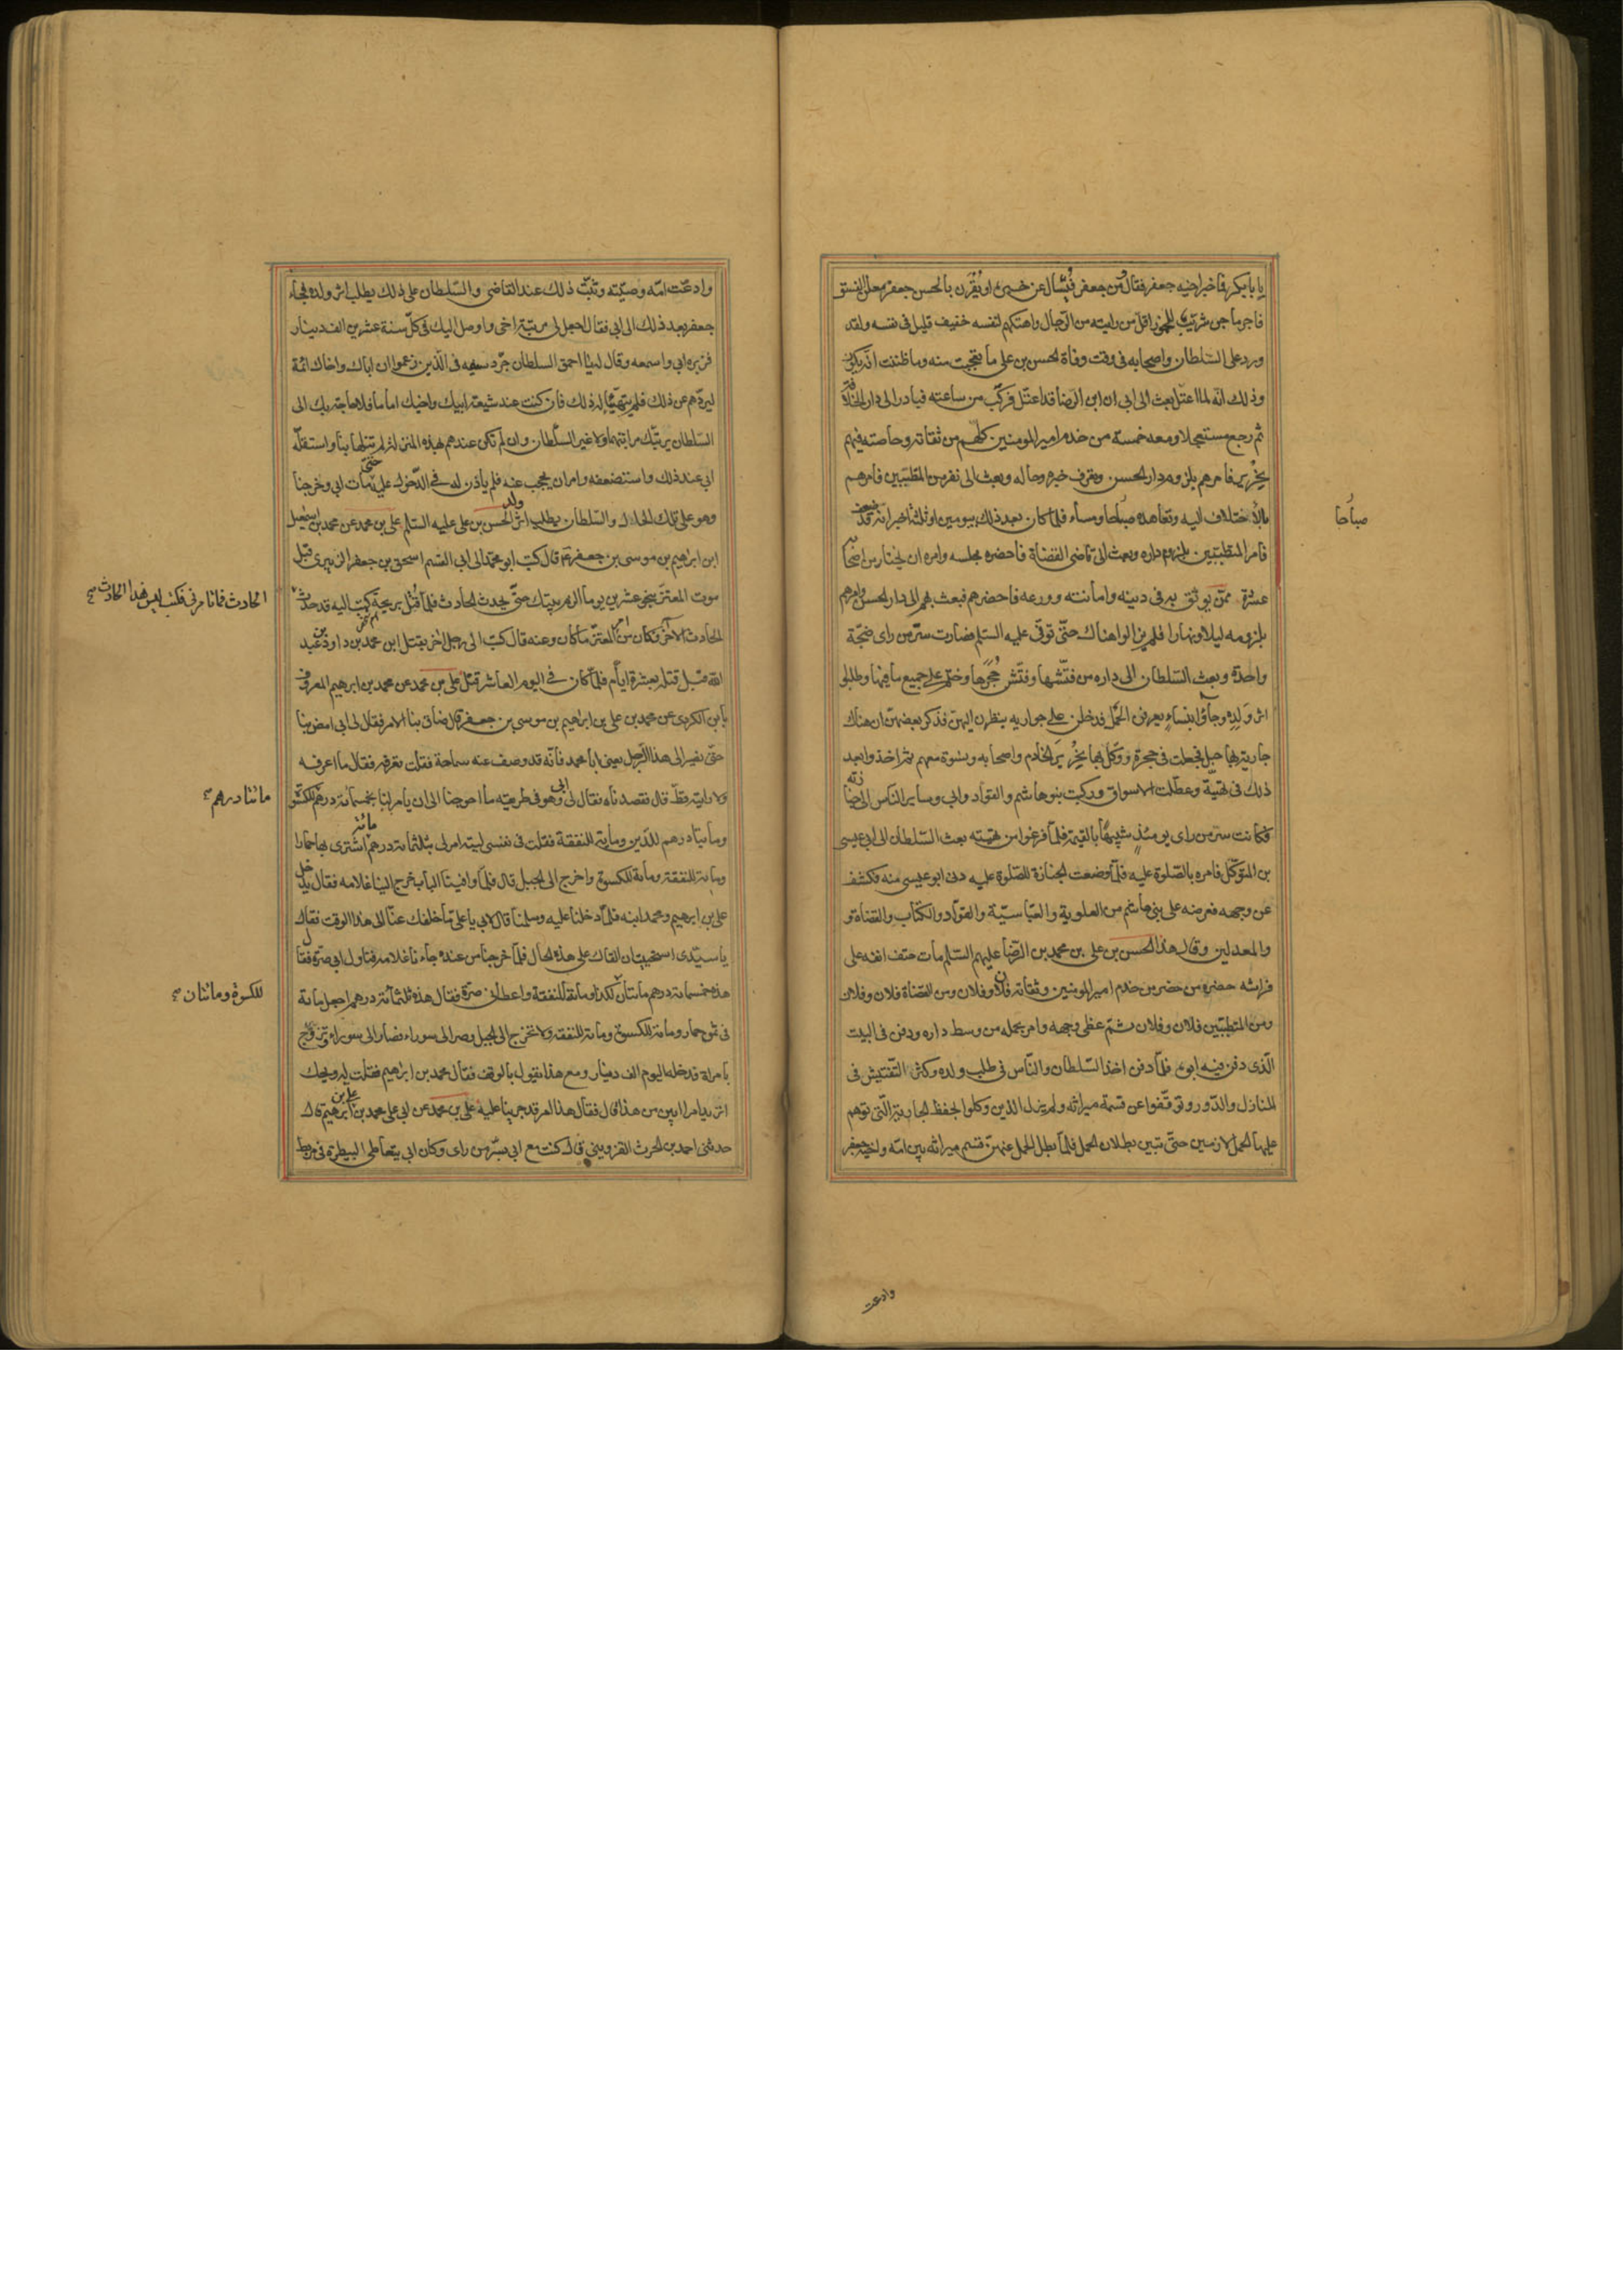 يا بابكر فما خبر اخيه جعفر فقال و من جعفر فيسأل عن خبره او يقرن بالحسن جعفر معلن الفسق
فاجر ماجن شريب للخمور اقل من رايته من الرجال واهتكهم لنفسه خفيف قليل فى نفسه ولقد
ورد على السلطان واصحابه فى وقت وفاة الحسن بن على ما تعجبت منه وما ظننت انه يكون
وذلك انه لما اعتل بعث الى ابى ان ابن الرضا قد اعتل فركب من ساعته فبادر الى دار الخلافة
ثم رجع مستعجلا ومعه خمسة من خدم امير المومنين كلهم من ثقاته وخاصته فيهم
نحرير فامرهم بلزوم دار الحسن وتعرف خبره وحاله وبعث الى نفر من المتطببين فامرهم
بالاختلاف اليه وتعاهده صباحا ومساء فلما كان بعد ذلك بيومين او ثلثة اخبر انه قد ضعف
صباحا
فامر المتطببين بلزوم داره وبعث الى قاضى القضاة فاحضره مجلسه وامره ان يختار من اصحابه
عشرة ممن يوثق به فى دينه وامانته وورعه فاحضرهم فبعث بهم الى دار الحسن وامرهم
بلزومه ليلا ونهارا فلم يزالوا هناك حتى توفى عليه السلم فصارت سر من راى ضجة
واحدة وبعث السلطان الى داره من فتشها وفتش حجرها وختم على جميع ما فيها وطلبوا
اثر ولده وجاؤا بنساء يعرفن الحمل فدخلن على جواريه ينظرن اليهن فذكر بعضهن ان هناك
جارية بها حبل فجعلت فى حجرة ووكل بها نحرير الخادم واصحابه ونسوة معهم ثم اخذوا بعد
ذلك فى تهيئته وعطلت الاسواق وركبت بنو هاشم والقواد وابى وساير الناس الى جنازته
فكانت سر من راى يومئذ شبيها بالقيمة فلما فرغوا من تهيئته بعث السلطان الى ابى عيسى
بن المتوكل فامره بالصلوة عليه فلما وضعت الجنازة للصلوة عليه دنى ابو عيسى منه فكشف
عن وجهه فعرضه على بنى هاشم من العلوية والعباسية والقواد والكتاب والقضاة و
والمعدلين وقال هذا الحسن بن على بن محمد بن الرضا عليهم السلم مات حتف انفه على
فراشه حضره من حضر من خدم امير المومنين وثقاته فلان وفلان ومن القضاة فلان وفلان
ومن المتطببين فلان وفلان ثم غطى وجهه وامر بحمله من وسط داره ودفن فى البيت
الذى دفن فيه ابوه فلما دفن اخذ السلطان والناس فى طلب ولده وكثر التفتيش فى
المنازل والدور وتوقفوا عن قسمة ميراثه ولم يزل الذين وكلوا بحفظ الجارية التى توهم
عليها الحمل لازمين حتى تبين بطلان الحمل فلما بطل الحمل عنهن قسم ميراثه بين امه واخيه جعفر
وادعت
وادعت امه وصيته وثبت ذلك عند القاضى والسلطان على ذلك يطلب اثر ولده فجاء
جعفر بعد ذلك الى ابى فقال اجعل لى مرتبة اخى واوصل اليك فى كل سنة عشرين الف دينار
فزبره ابى واسمعه وقال له يا احمق السلطان جرد سيفه فى الذين زعموا ان اباك واخاك ائمة
ليردهم عن ذلك فلم يتهيأ له ذلك فان كنت عند شيعة ابيك واخيك اماما فلا حاجة بك الى
السلطان يرتبك مراتبهما ولا غير السلطان وان لم تكن عندهم بهذه المنزلة لم تنلها بنا واستقله
ابى عند ذلك واستضعفه وامر ان يحجب عنه فلم ياذن له فى الدخول عليه حتى مات ابى وخرجنا
وهو على تلك الحال والسلطان يطلب اثر ولد الحسن بن على عليه السلم على بن محمد عن محمد بن اسمعيل
ابن ابراهيم بن موسى بن جعفر قال كتب ابو محمد الى ابى القسم اسحق بن جعفر الزبيرى قبل
موت المعتز بنحو عشرين يوما الزم بيتك حتى يحدث الحادث فلما قتل بريحة كتب اليه قد حدث
الحادث فما تامرنى فكتب ليس هذا الحادث صح
الحادث الاخر فكان من امر المعتز ما كان وعنه قال كتب الى رجل اخر يقتل ابن محمد بن داود عبد
الله قبل قتله بعشرة ايام فلما كان فى اليوم العاشر قتل على بن محمد عن محمد بن ابرهيم المعروف
بابن الكردى عن محمد بن على بن ابراهيم بن موسى بن جعفر قال ضاق بنا الامر فقال لى ابى امض بنا
حتى نصير الى هذا الرجل يعنى ابا محمد فانه قد وصف عنه سماحة فقلت تعرفه فقال ما اعرفه
ولا رايته قط قال فقصدناه فقال لى ابى وهو فى طريقه ما احوجنا الى ان يامر لنا بخمسمائة درهم للكسوة
مائتا درهم صح
ومايتا درهم للدين ومأية للنفقة فقلت فى نفسى ليته امر لى بثلثمائة درهم مائة اشترى بها حمارا
ومائة للنفقة ومائة للكسوة واخرج الى الجبل قال فلما وافينا الباب خرج الينا غلامه فقال يدخل
على بن ابرهيم ومحمد ابنه فلما دخلنا عليه وسلمنا قال لابى يا على ما خلفك عنا الى هذا الوقت فقال
يا سيدى استحييت ان القاك على هذه الحال فلما خرجنا من عنده جاءنا غلامه فناول ابى صرة فقال
هذه خمسمائة درهم مائتان للدين ومائة للنفقة واعطانى صرة فقال هذه ثلثمائة درهم اجعل مائة
للكسوة ومائتان صح
فى ثمن حمار ومائة للكسوة ومائة للنفقة ولا تخرج الى الجبل وصر الى سوراء فصار الى سوراء وتزوج
بامراة فدخله اليوم الف دينار ومع هذا يقول بالوقف فقال محمد بن ابراهيم فقلت له ويحك
اتريد امرا ابين من هذا قال فقال هذا امر قد جرينا عليه على بن محمد عن ابى على محمد بن على بن ابرهيم قال
حدثنى احمد بن الحرث القزوينى قال كنت مع ابى بسر من راى وكان ابى يتعاطى البيطرة فى مربط